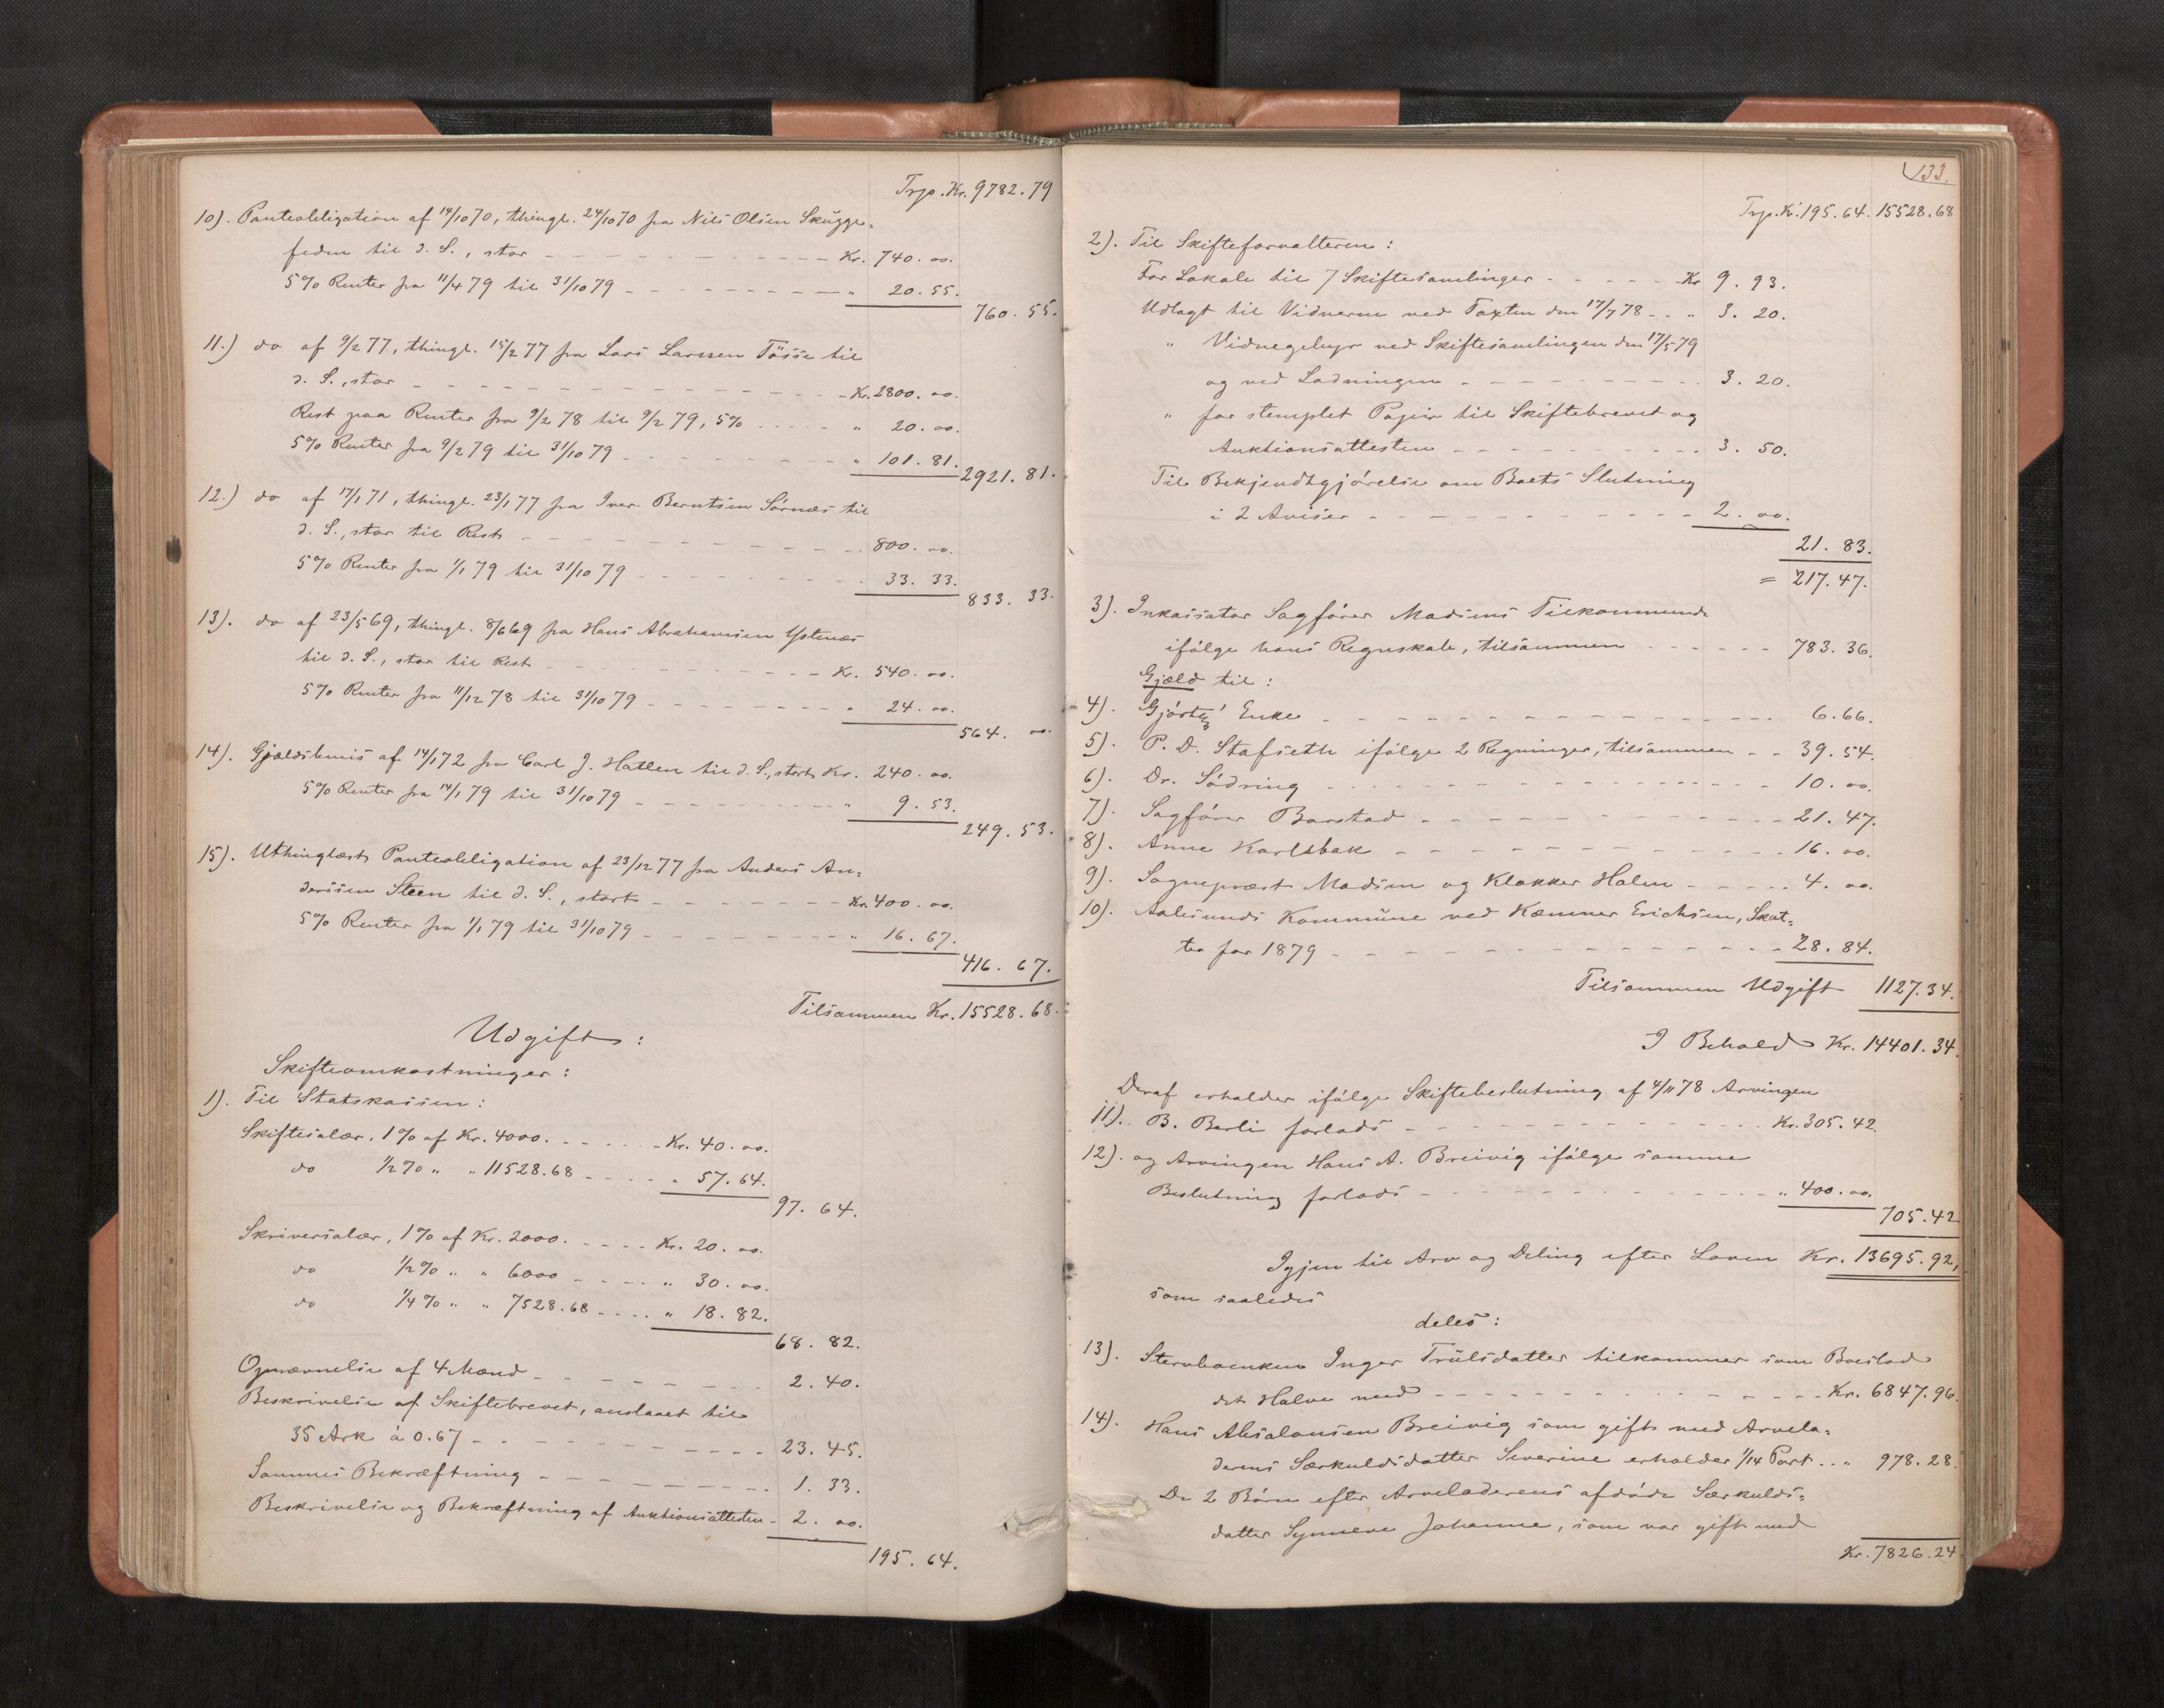 Trp. Kr. 9782.79
10). Panteobligation af 14/10 70, thingl. 24/10 70 fra Nils Olsen Skugge-
feden til d. S., stor - - - Kr. 740.00.
5% Renter fra 11/4 79 til 31/10 79 - - - " 20.55.
760.55.
11.) do af 9/2 77, thingl. 15/2 77 fra Lars Larssen Tösse til
d. S., stor - - - Kr. 2800.00.
Rest paa Renter fra 9/2 78 til 9/2 79, 5% - - - " 20.00.
5% Renter fra 9/2 79 til 31/10 79 - - - " 101.81.
2921.81.
12.) do af 17/1 71, thingl. 23/1 77 fra Iver Berntsen Sörnes til
d. S., stor til Rest - - - 800.00.
5% Renter fra 1/1 79 til 31/10 79 - - - 33.33.
833.33.
13). do af 23/5 69, thingl. 8/6 69 fra Hans Abrahamsen Ystenes
til d. S., stor til Rest - - - Kr. 540.00.
5% Renter fra 11/12 78 til 31/10 79 - - - " 24.00.
564.00.
14). Gjældsbevis af 14/1 72 fra Carl J. Hatlen til d. S., stort Kr. 240.00.
5% Renter fra 14/1 79 til 31/10 79 - - - " 9.53.
249.53.
15). Uthinglæst Panteobligation af 23/12 77 fra Anders An-
derssen Steen til d. S., stort - - - Kr. 400.00.
5% Renter fra 1/1 79 til 31/10 79 - - - " 16.67.
416.67.
Tilsammen Kr. 15528.68.
Udgift:
Skifteomkostninger:
1). Til Statskassen:
Skiftesalær, 1% af Kr. 4000. - - - Kr. 40.00.
do 1/2% " " 11528.68 - - - " 57.64.
97.64.
Skriversalær, 1% af Kr. 2000. - - - Kr. 20.00.
do 1/2% " " 6000 - - - " 30.00.
do 1/4% " " 7528.68 - - - " 18.82.
68.82.
Opnævnelse af 4 Mænd - - - 2.40.
Beskrivelse af Skiftebrevet, anslaaet til
35 Ark á 0.67 - - - 23.45.
Sammes Bekræftning - - - 1.33.
Beskrivelse og Bekræftning af Auktionsattesten - 2.00.
195.64.
133.
Trp. Kr. 195.64. 15528.68
2). Til Skifteforvalteren:
For Lokale til 7 Skiftesamlinger - - - Kr 9.93.
Udlagt til Vidnerne ved Taxten den 17/7 78 - - " 3.20.
" Vidnegebyr ved Skiftesamlingen den 17/5 79
og ved Lodningen - - - 3.20.
" for stemplet Papir til Skiftebrevet og
Auktionsattesten - - - 3.50.
Til Bekjendtgjörelse om Boets Slutning
i 2 Aviser - - - 2.00.
21.83.
= 217.47.
3). Inkassator Sagförer Madsens Tilkommende
ifölge hans Regnskab, tilsammen - - - 783.36.
Gjæld til:
4). Enke - - - 6.66.
5). P. D. Stafseth ifölge 2 Regninger, tilsammen - - 39.54.
6). Dr. Södring - - - 10.00.
7). Sagförer Barstad - - - 21.47.
8). Anne Karlsbak - - - 16.00.
9). Sognepræst Madsen og Klokker Holen - - - 4.00.
10). Aalesunds Kommune ved Kæmner Erichsen, Skat-
ter for 1879 - - - 28.84.
Tilsammen Udgift 1127.34.
I Behold Kr. 14401.34.
Deraf erholder ifölge Skiftebeslutning af 4/11 78 Arvingen
11). B. Berli forlods - - - Kr. 305.42.
12). og Arvingen Hans A. Breivig ifölge samme
Beslutning forlods - - - " 400.00.
705.42
Igjen til Arv og Deling efter Loven Kr. 13695.92,
som saaledes
deles:
13). Stervboenken Inger Trulsdatter tilkommer som Boeslod
det Halve med - - - Kr. 6847.96.
14). Hans Absalonsen Breivig som gift med Arvela-
derens Særkuldsdatter Severine erholder 1/14 Part - - " 978.28.
De 2 Börn efter Arveladerens afdöde Særkulds-
datter Synneve Johanne, som var gift med
Kr. 7826.24.